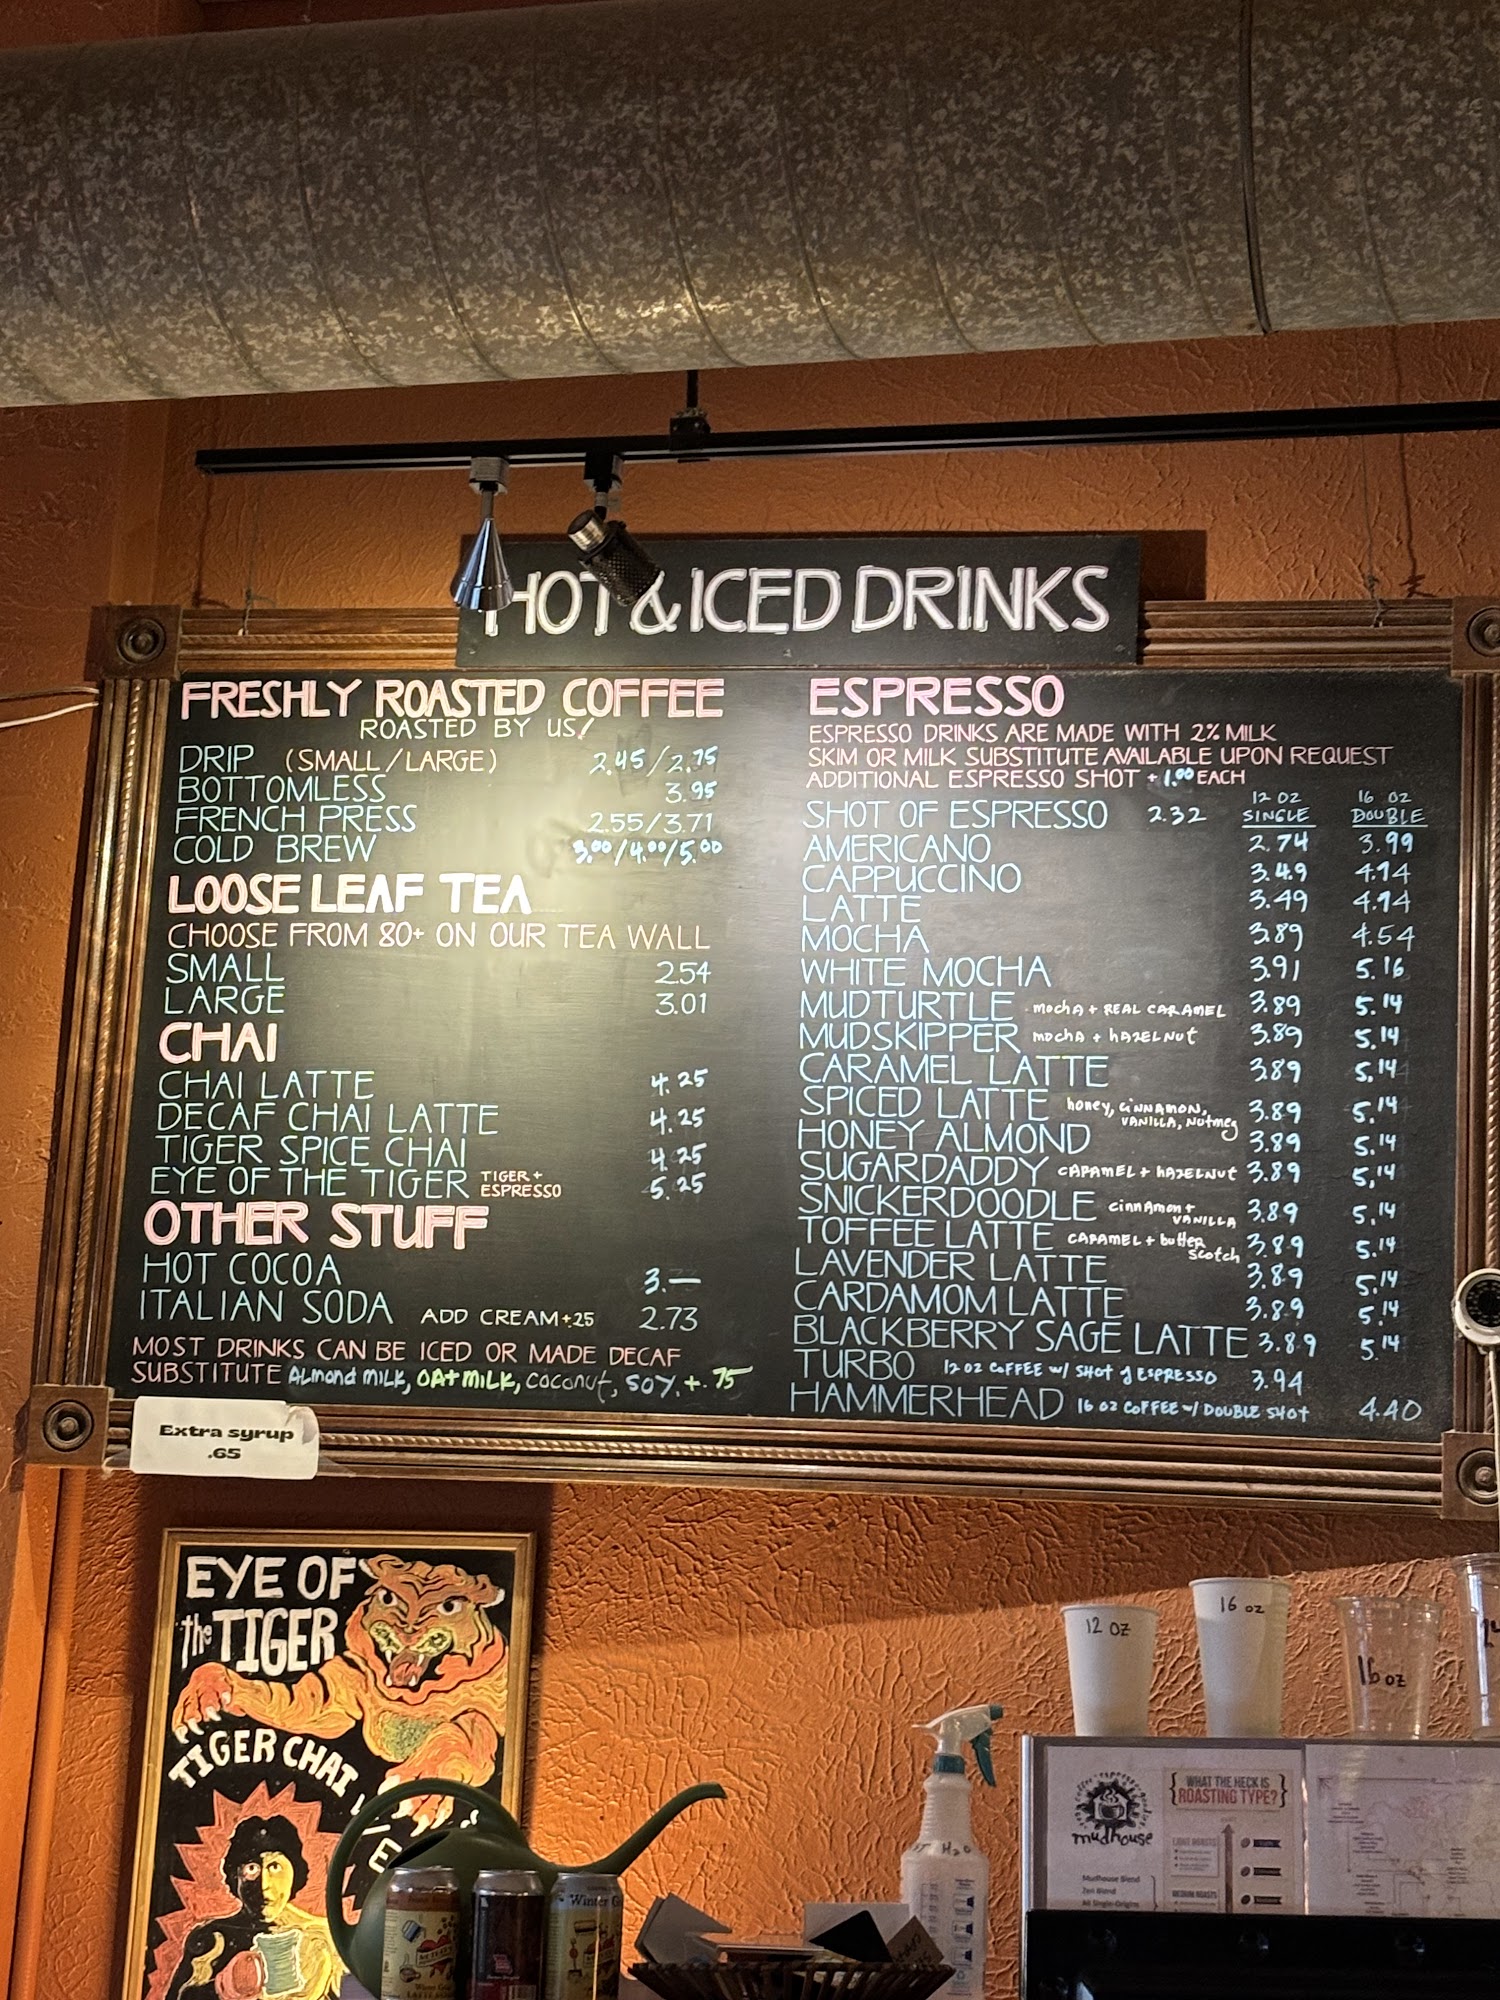 HOT & ICED DRINKS
FRESHLY ROASTED COFFEE
ROASTED BY US!
DRIP (SMALL/LARGE) 2.45/2.75
BOTTOMLESS 3.95
FRENCH PRESS 2.55/3.71
COLD BREW 3.00/4.00/5.00
LOOSE LEAF TEA
CHOOSE FROM 80+ ON OUR TEA WALL
SMALL 2.54
LARGE 3.01
CHAI
CHAI LATTE 4.25
DECAF CHAI LATTE 4.25
TIGER SPICE CHAI 4.25
EYE OF THE TIGER TIGER + ESPRESSO 5.25
OTHER STUFF
HOT COCOA 3.—
ITALIAN SODA ADD CREAM +.25 2.73
MOST DRINKS CAN BE ICED OR MADE DECAF
SUBSTITUTE ALMOND MILK, OAT MILK, COCONUT, SOY. +.75
Extra syrup
.65
ESPRESSO
ESPRESSO DRINKS ARE MADE WITH 2% MILK
SKIM OR MILK SUBSTITUTE AVAILABLE UPON REQUEST
ADDITIONAL ESPRESSO SHOT + 1.00 EACH
12 OZ 16 OZ
SHOT OF ESPRESSO 2.32 SINGLE DOUBLE
AMERICANO 2.74 3.99
CAPPUCCINO 3.49 4.14
LATTE 3.49 4.14
MOCHA 3.89 4.54
WHITE MOCHA 3.91 5.16
MUDTURTLE MOCHA + REAL CARAMEL 3.89 5.14
MUDSKIPPER MOCHA + HAZELNUT 3.89 5.14
CARAMEL LATTE 3.89 5.14
SPICED LATTE honey, CINNAMON, VANILLA, Nutmeg 3.89 5.14
HONEY ALMOND 3.89 5.14
SUGARDADDY CARAMEL + HAZELNUT 3.89 5.14
SNICKERDOODLE cinnamon + VANILLA 3.89 5.14
TOFFEE LATTE CARAMEL + butter scotch 3.89 5.14
LAVENDER LATTE 3.89 5.14
CARDAMOM LATTE 3.89 5.14
BLACKBERRY SAGE LATTE 3.89 5.14
TURBO 12 OZ COFFEE W/ SHOT of ESPRESSO 3.94
HAMMERHEAD 16 OZ COFFEE w/ DOUBLE SHOT 4.40
EYE OF
the TIGER
TIGER CHAI
12 OZ
16 oz
16 oz
H2O
Winter
mudhouse
WHAT THE HECK IS
ROASTING TYPE?
LIGHT ROASTS
MEDIUM ROASTS
Mudhouse Blend
Zen Blend
All Single-Origins